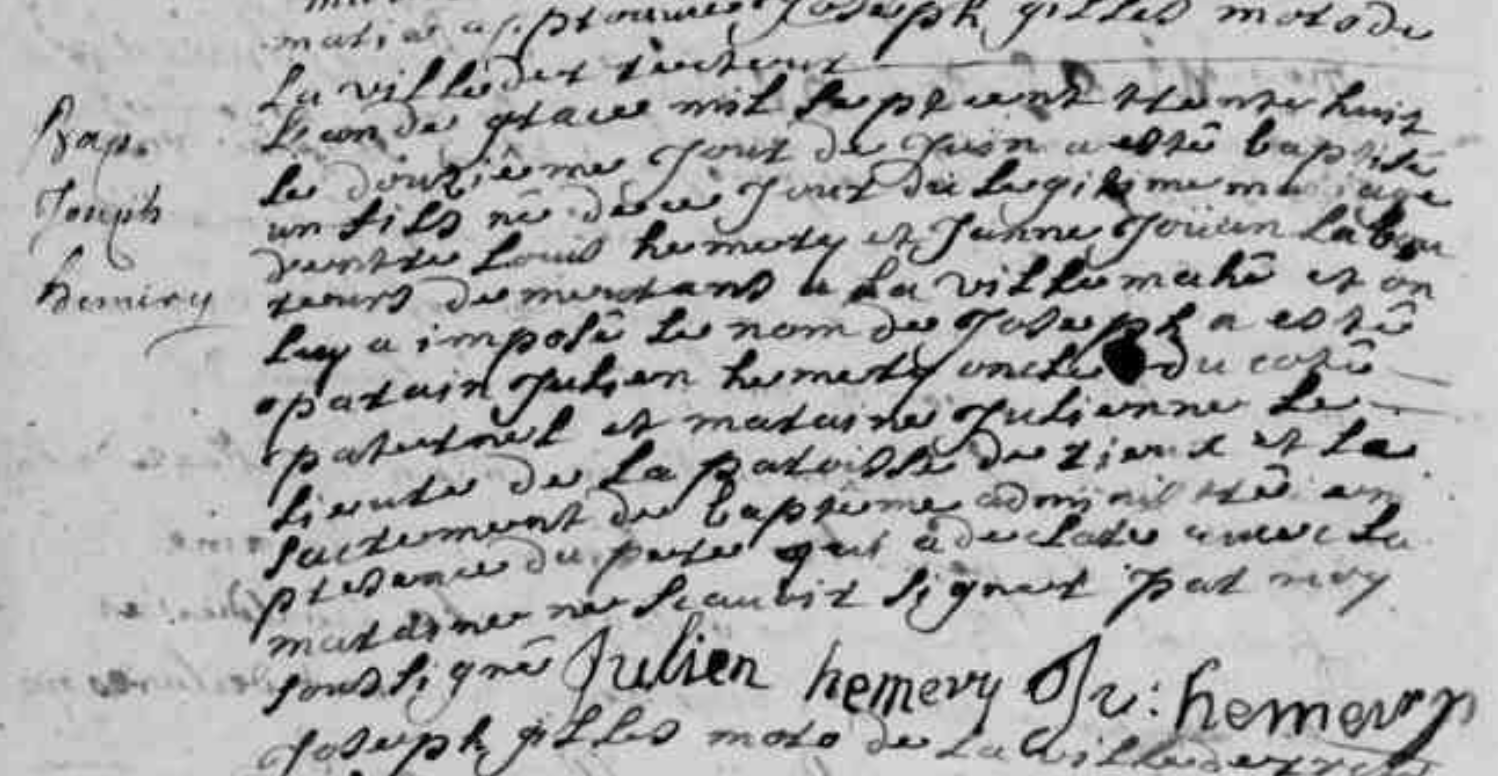 joseph gilles moro de
la ville der recteur
Bap.
Joseph
hemery
L'an de grace mil sept cent trente huit
le douziême jour de juin a estê baptisê
un fils nê de ce jour du legitime mariage
dentre Louis hemery et Janne Joüan labou
reurs demeurans a la ville mahê et on
luy a imposê le nom de Joseph a estê
parain Julien hemery oncle du cotê
paternel et maraine Julienne Le
de la paroisse de et le
sacrement de baptême administrê en
presence du pere qui a declare avec la
maraine ne scauoir signer par moy
soussignê Julien hemery hemery
Joseph gilles moro de la ville der